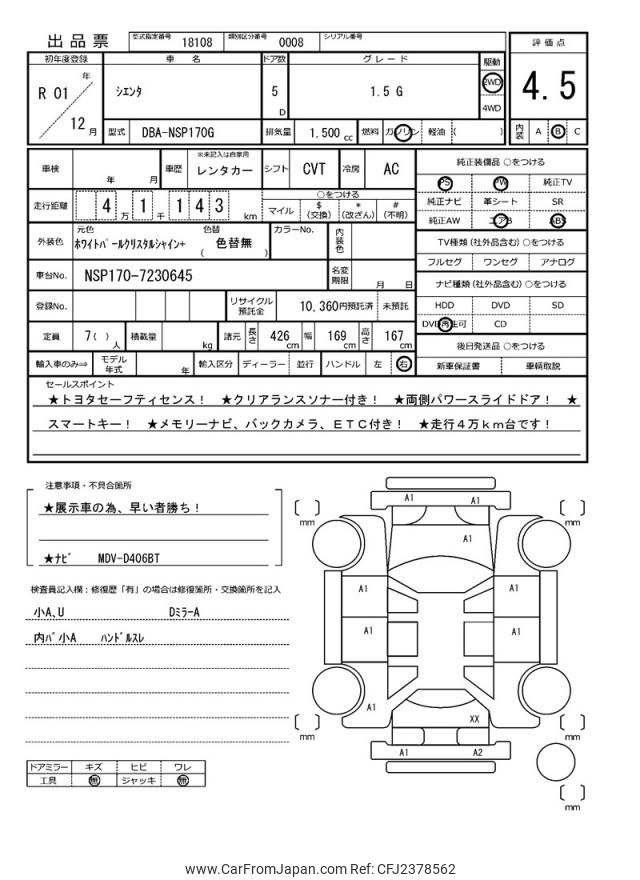 出品票 型式指定番号 18108 類別区分番号 0008 シリアル番号
評価点
4.5
内装 A B C
初年度登録 車名 ドア数 グレード 駆動
R 01 年 シエンタ 5 D 1.5 G 2WD
4WD
12 月 型式 DBA-NSP170G 排気量 1.500 cc 燃料 ガソリン 軽油 ( )
車検 年 月 車歴 ※未記入は自家用 レンタカー シフト CVT 冷房 AC
走行距離 4 万 1 千 1 4 3 km ○をつける
マイル $(交換) *(改ざん) #(不明)
外装色 元色 ホワイトパールクリスタルシャイン+ 色替 ( 色替無 ) カラーNo. 内装色
車台No. NSP170-7230645 名変期限 月 日
登録No. リサイクル預託金 10.360円預託済 未預託
定員 7( )人 積載量 kg 諸元 長さ 426cm 幅 169cm 高さ 167cm
輸入車のみ⇒ モデル年式 年 輸入区分 ディーラー 並行 ハンドル 左 右
純正装備品 ○をつける
PS PW 純正TV
純正ナビ 革シート SR
純正AW エアB ABS
TV種類(社外品含む) ○をつける
フルセグ ワンセグ アナログ
ナビ種類(社外品含む) ○をつける
HDD DVD SD
DVD再生可 CD
後日発送品 ○をつける
新車保証書 車輌取説
セールスポイント
★トヨタセーフティセンス! ★クリアランスソナー付き! ★両側パワースライドドア! ★
スマートキー! ★メモリーナビ、バックカメラ、ETC付き! ★走行4万km台です!
注意事項・不具合箇所
★展示車の為、早い者勝ち!
★ナビ MDV-D406BT
検査員記入欄:修復歴「有」の場合は修復箇所・交換箇所を記入
小A、U Dミラー A
内バ小A ハンドルスレ
ドアミラー キズ ヒビ ワレ
工具 無 ジャッキ 無
A1 A1
mm mm
A1
A1 A1
A1 A1
A1
XX
mm mm
A1 A2
mm
www.CarFromJapan.com Ref: CFJ2378562